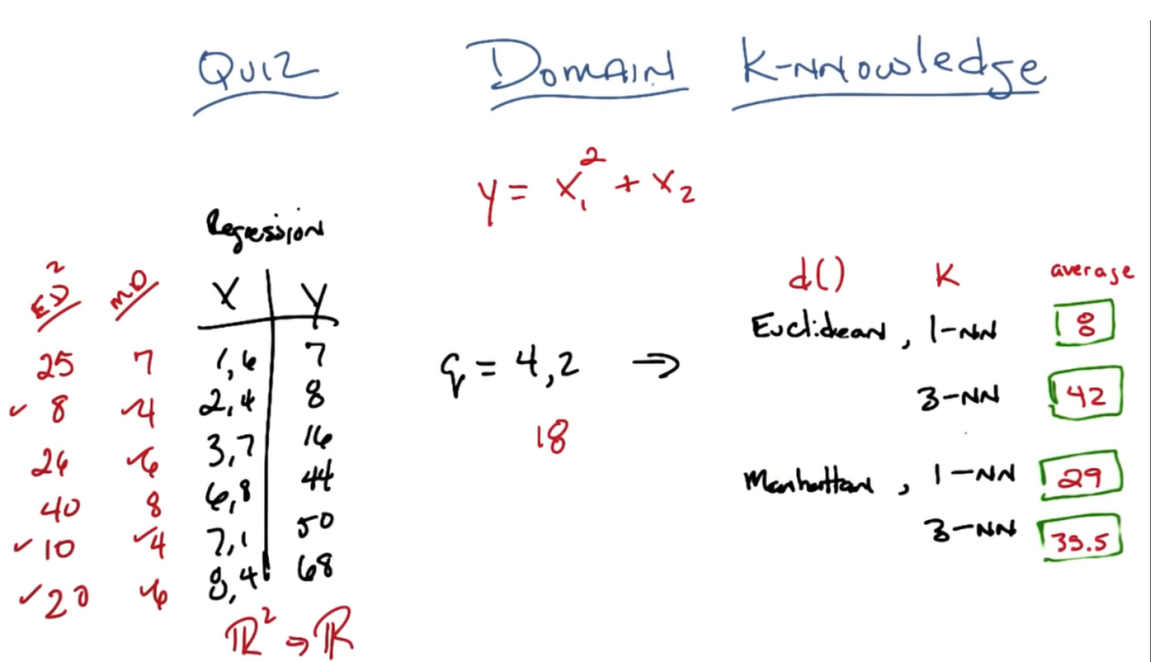 QUIZ DOMAIN K-NNowledge
y = x₁² + x₂
Regression
ED² MD X Y
d() K average
25 7 1,6 7
✓ 8 ✓4 2,4 8
26 ✓6 3,7 16
40 8 6,8 44
✓ 10 ✓4 7,1 50
✓ 20 ✓6 8,4 68
ℝ² → ℝ
q = 4,2 ⇒
18
Euclidean, 1-NN 8
3-NN 42
Manhattan, 1-NN 29
3-NN 35.5